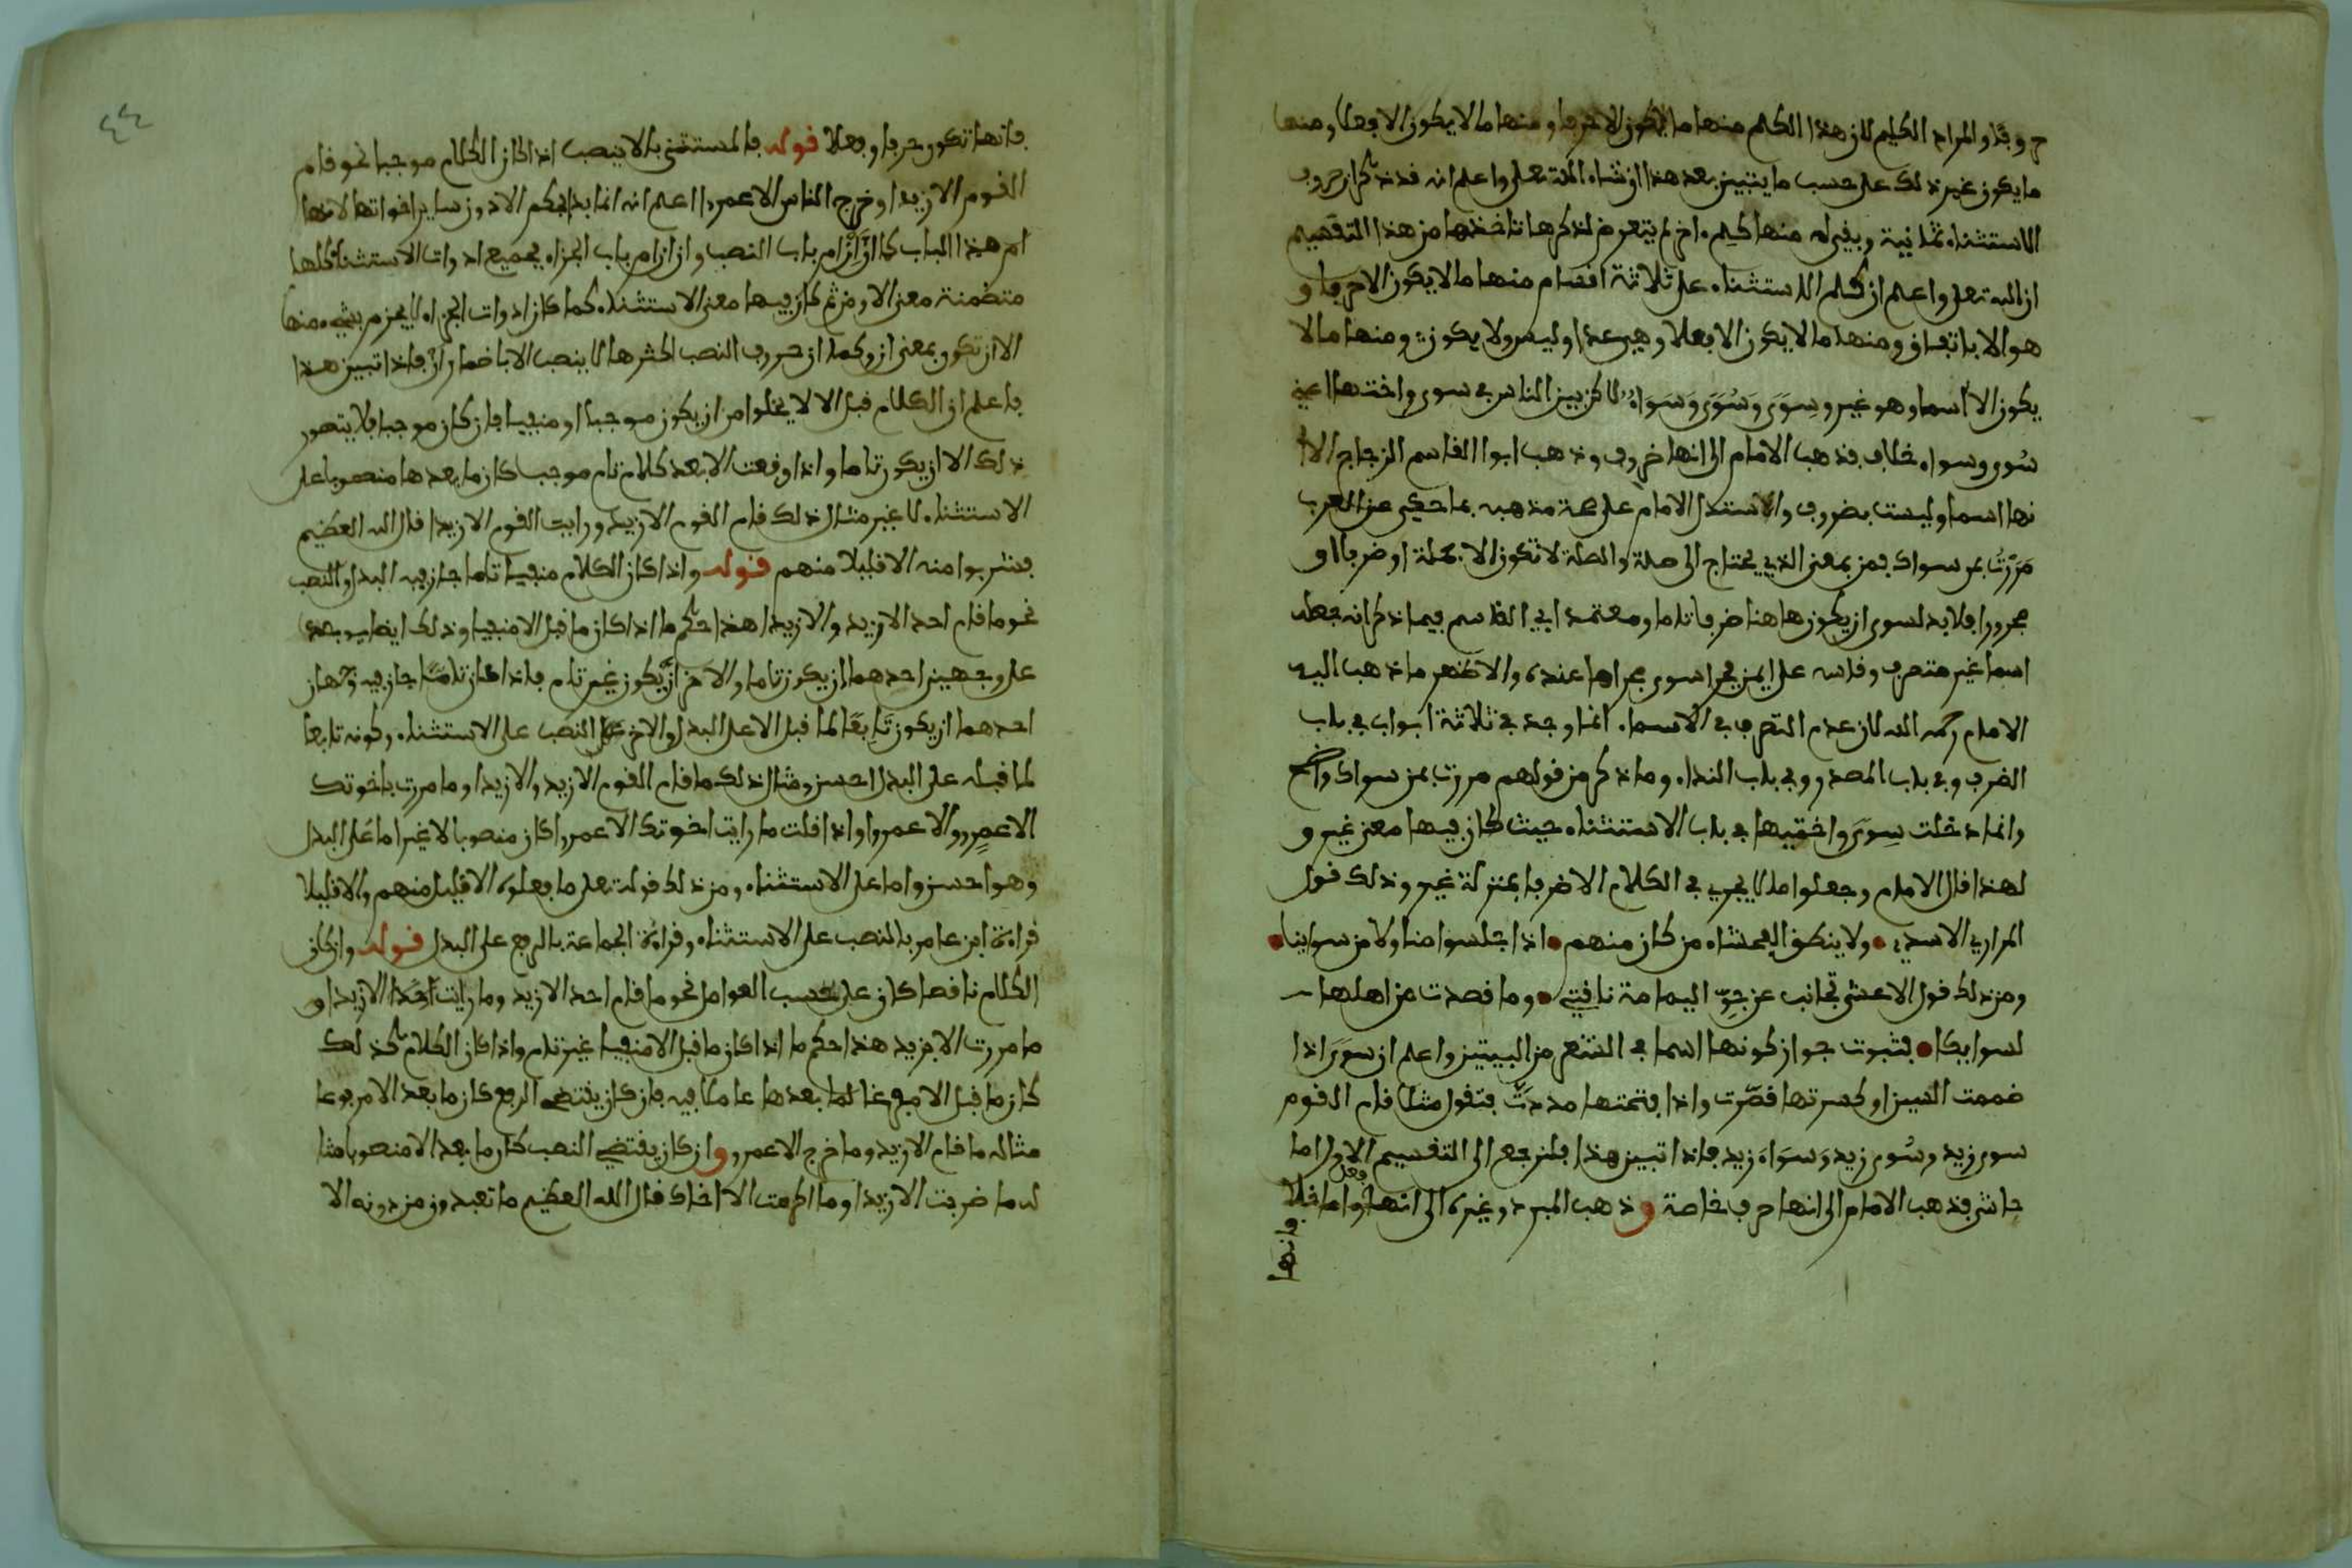 حروفا والمراد الكلم لان هذا الكلم منها ما لا يكون الا حرفا ومنها ما لا يكون الا فعلا ومنها
ما يكون غير ذلك على حسب ما يتبين بعد هذا ان شاء الله تعلى واعلم انه قد ذكر ان حروف
الاستثناء ثمانية وبقي له منها كلم اخر لم يتعرض لذكرها تاخذها من هذا التقسيم
ان الله تعلى واعلم ان كلم الاستثناء على ثلاثة اقسام منها ما لا يكون الا حرفا و
هو الا باتفاق ومنها ما لا يكون الا فعلا وهي عدا وليس ولا يكون ومنها ما لا
يكون الا اسما وهو غير وسِوَى وسُوَى وسَوَاءٌ لاكن بين الناس في سوى واختها اعني
سُوى وسواء خلاف فذهب الامام الى انها ظروف وذهب ابوا القاسم الزجاج الا ا
نها اسما وليست بضروف واستدل الامام على صحة مذهبه بما حكي عن العرب
مَرَرْتُ بمن سواك فمن بمعنى الذي يحتاج الى صلة والصلة لا تكون الا بجملة او ضربا او
مجرورا فلا بد لسوى ان يكون هاهنا ضرفا تاما ومعتمد ابي القاسم فيما ذكر انه جعله
اسما غير متصرف وقاسه على ايمن فجرا سوى مجراها عنده والاظهر ما ذهب اليه
الامام رحمه الله لان عدم التصرف في الاسماء انما وجد في ثلاثة ابواب في باب
الضرف وفي باب المصدر وفي باب النداء وما ذكر من قولهم مررت بمن سواك واضح
وانما دخلت سِوَى واختيها في باب الاستثناء حيث كان فيها معنى غير و
لهذا قال الامام وجعلوا ما لا يجري في الكلام الا ضرفا بمنزلة غير وذلك قول
المراري الاسدي ولا ينطق الفحشاء من كان منهم اذا جلسوا منا ولا من سوائنا
ومن ذلك قول الاعشى تجانف عن جوّ اليمامة ناقتي وما قصدت من اهلها
لسوائكا فثبوت جواز كونها اسما في الشعر من البيتين واعلم ان سوى اذا
ضممت السين او كسرتها قصّرت واذا فتحتها مددتّ فتقول مثلا قام القوم
سوى زيد وسُوى زيد وسَوَاءَ زيد فاذا تبين هذا فلنرجع الى التقسيم الاول اما
حاشى فذهب الامام الى انها حرف خاصة وذهب المبرد وغيره الى انها فعل واما خلا
فانها
٤٤
فانها تكون حرفا وفعلا قوله فالمستثنى بالا ينصب اذا كان الكلام موجبا نحو قام
القوم الا زيدا وخرج الناس الا عمروا اعلم انه انما بدا بحكم الا دون ساير اخواتها لانها
ام هذا الباب كما ان انْ ام باب النصب وان ان ام باب الجزاء فجميع ادوات الاستثناء كلها
متضمنة معنى الا ومن ثم كان فيها معنى الاستثناء كما كان ادوات الجزاء لا يجزم بشيء منها
الا ان تكون بمعنى ان وكما ان حروف النصب اكثرها لا ينصب الا باضمار انْ فاذا تبين هذا
فاعلم ان الكلام قبل الا لا يخلوا من ان يكون موجبا او منفيا فان كان موجبا فلا يتصور
ذلك الا ان يكون تاما واذا وقعت الا بعد كلام تام موجب كان ما بعدها منصوبا على
الاستثناء لا غير مثال ذلك قام القوم الا زيدا ورايت القوم الا زيدا قال الله العظيم
فشربوا منه الا قليلا منهم قوله واذا كان الكلام منفيا تاما جاز فيه البدل والنصب
نحو ما قام احد الا زيد والا زيدا هذا حكم ما اذا كان ما قبل الا منفيا وذلك ايضا
على وجهين احدهما ان يكون تاما والاخر ان يكون غير تام فاذا كان تامًّا جاز فيه وجهان
احدهما ان يكون تَابِعًا لما قبل الا على البدل والاخر النصب على الاستثناء وكونه تابعا
لما قبله على البدل احسن ومثال ذلك ما قام القوم الا زيد والا زيدا وما مررت باخوتك
الا عمرٍو والا عمروا واذا قلت ما رايت اخوتك الا عمروا كان منصوبا لا غير اما على البدل
وهو احسن واما على الاستثناء ومن ذلك قوله تعلى ما فعلوه الا قليل منهم والا قليلا
قراءة ابن عامر بالنصب على الاستثناء وقراءة الجماعة بالرفع على البدل قوله وان كان
الكلام ناقصا كان على حسب العوامل نحو ما قام احد الا زيد وما رايت احدا الا زيدا و
ما مررت الا بزيد هذا حكم ما اذا كان ما قبل الا منفيا غير تام واذا كان الكلام كذلك
كان ما قبل الا مفرغا لما بعدها عاملا فيه فان كان يقتضي الرفع كان ما بعد الا مرفوعا
مثاله ما قام الا زيد وما خرج الا عمرو وان كان يقتضي النصب كان ما بعد الا منصوبا مثا
له ما ضربت الا زيدا وما اكرمت الا اخاك قال الله العظيم ما تعبدون من دونه الا